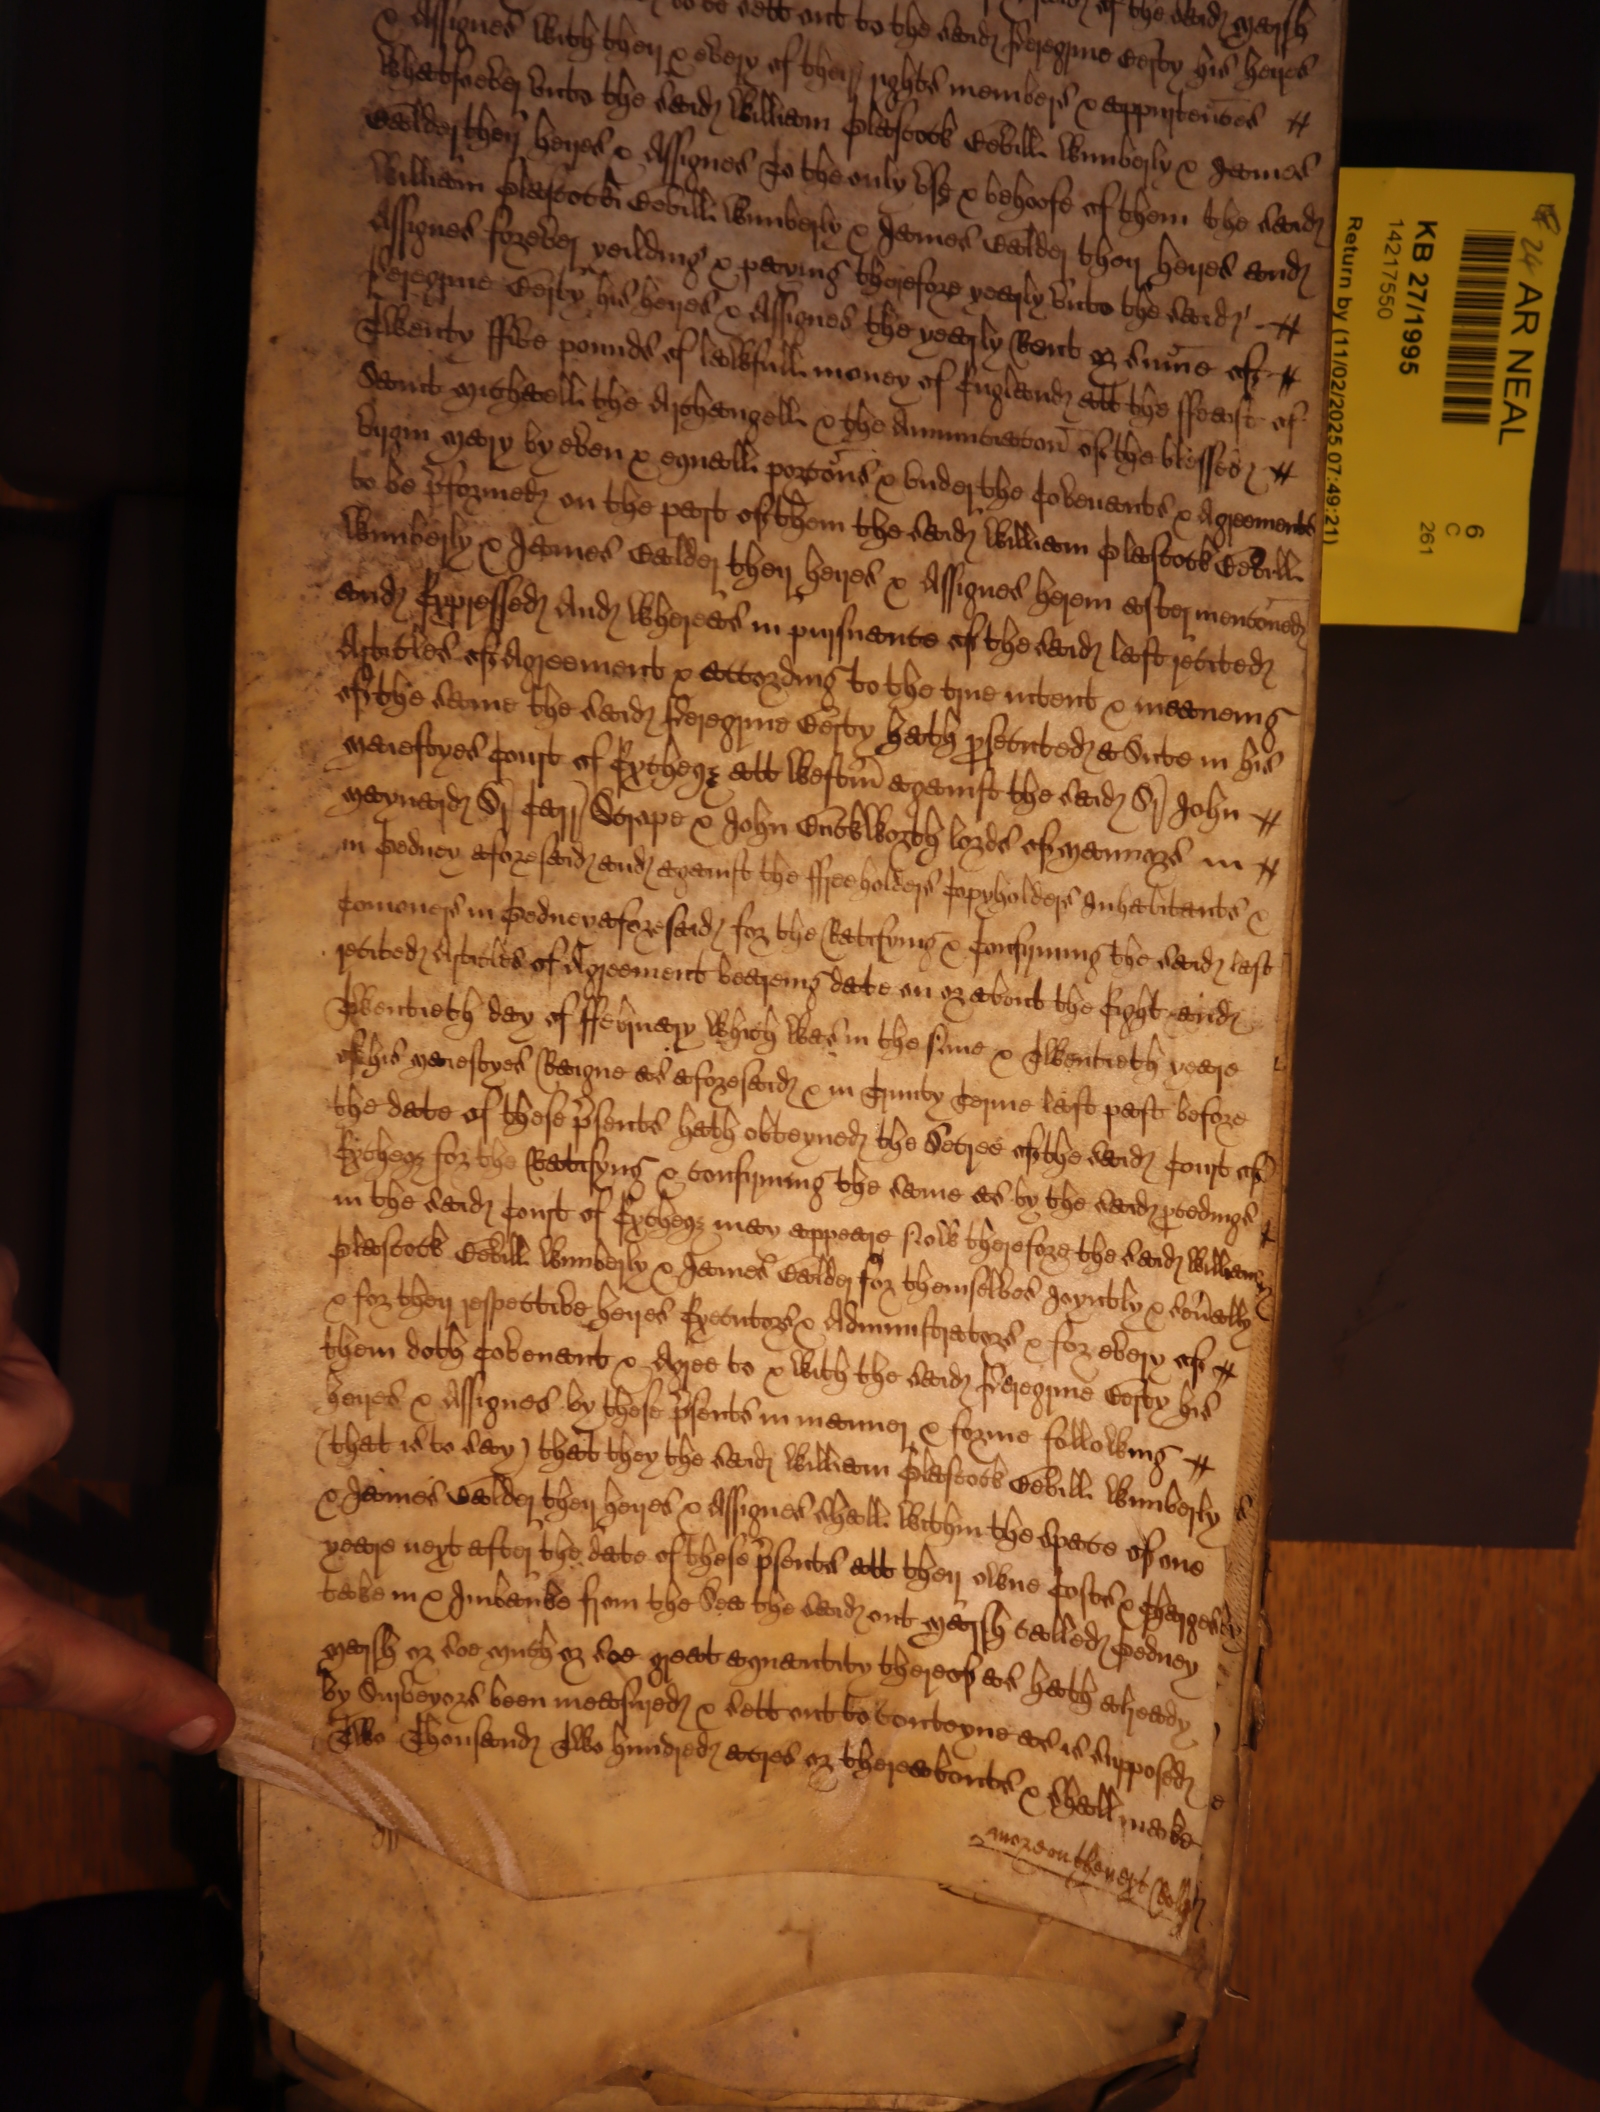 to be sett out to the said Peregrine Berty his heires
& Assignes with their & every of their rights members & appurteñces
whatsoever unto the said William Plastock Bevill Wimberly & James
Calder their heires & Assignes To the only use & behoofe of them the said
William Plastock Bevill Wimberly & James Calder their heires and
Assignes forever yeilding & paying therefore yearly unto the said
Peregrine Berty his heires & Assignes the yearly Rent or sume of
Twenty ffive pounds of lawfull money of England att the ffeast of
Saint Michaell the Archangell & the Annuntiation of the blessed
virgin Mary by even & equall portõns & under the Covenants & Agreements
to be p̱formed on the part of them the said William Plastock Bevill
Wimberly & James Calder their heires & Assignes herein after mentõned
and Expressed And whereas in pursuance of the said last recited
Articles of Agreement & according to the true intent & meaneing
of the same the said Peregrine Berty hath p̱secuted a Suite in his
Maiestyes Court of Excheq̱ att Westm̄ against the said Sr John
Maynard Sr Carr Scrope & John Cudworth lords of Mannors in
in Gedney aforesaid and against the ffreeholders Copyholders Inhabitants &
Comoners in Gedney aforesaid for the Ratifying & Confirming the said last
recited Articles of Agreement beareing date on or about the Eight and
Twentieth day of ffebruary which was in the nine & Twentieth yeare
of his Maiestyes Raigne as aforesaid & in Trinity Terme last past before
the date of these p̱sents hath obteyned the Decree of the said Court of
Excheq̱ for the Ratifyng & confirming the same as by the said p̱ceedings
in the said Court of Excheq̱ may appeare Now therefore the said William
Plastock Bevill Wimberly & James Calder for themselves Joyntly & seũally
& for their respective heires Executors & Administrators & for every of
them doth Covenant & Agree to & with the said Peregrine Berty his
heires & Assignes by these p̱sents in manner & forme following
(that is to say) that they the said William Plastock Bevill Wimberly
& James Calder their heires & Assignes shall within the space of one
yeare next after the date of these p̱sents att their owne Costs & Charges
take in & Imbanke from the Sea the said out Marsh called Gedney
Marsh or soe much or soe great a quantity thereof as hath already
by Surveyors been measured & sett out to conteyne as is supposed
Two Thousand Two hundred acres or thereabouts & shall make
more on the next Roll
AR NEAL
KB 27/1995
14217550
Return by (11/02/2025 07:49:21)
6
C
261